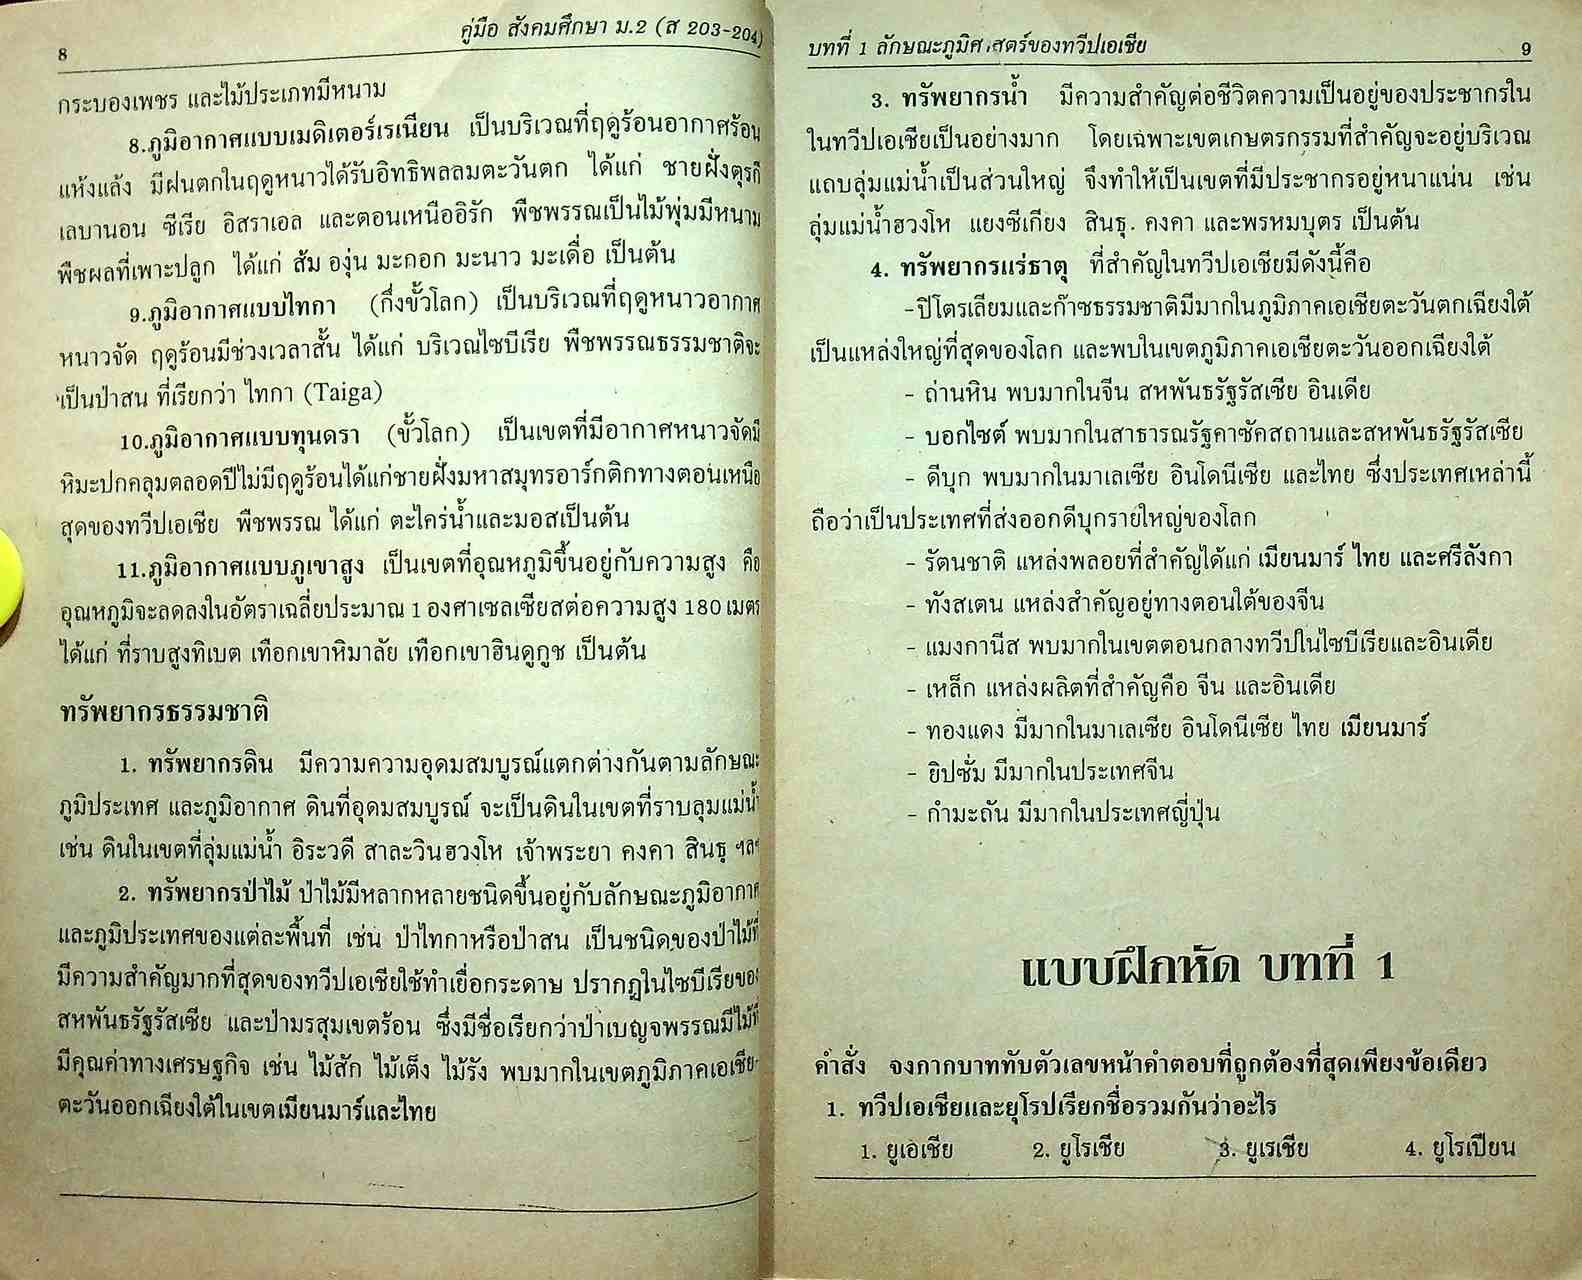 8
คู่มือ สังคมศึกษา ม.2 (ส 203-204)
กระบองเพชร และไม้ประเภทมีหนาม
8.ภูมิอากาศแบบเมดิเตอร์เรเนียน เป็นบริเวณที่ฤดูร้อนอากาศร้อน
แห้งแล้ง มีฝนตกในฤดูหนาวได้รับอิทธิพลลมตะวันตก ได้แก่ ชายฝั่งตุรกี
เลบานอน ซีเรีย อิสราเอล และตอนเหนืออิรัก พืชพรรณเป็นไม้พุ่มมีหนาม
พืชผลที่เพาะปลูก ได้แก่ ส้ม องุ่น มะกอก มะนาว มะเดื่อ เป็นต้น
9.ภูมิอากาศแบบไทกา (กึ่งขั้วโลก) เป็นบริเวณที่ฤดูหนาวอากาศ
หนาวจัด ฤดูร้อนมีช่วงเวลาสั้น ได้แก่ บริเวณไซบีเรีย พืชพรรณธรรมชาติจะ
เป็นป่าสน ที่เรียกว่า ไทกา (Taiga)
10.ภูมิอากาศแบบทุนดรา (ขั้วโลก) เป็นเขตที่มีอากาศหนาวจัดมี
หิมะปกคลุมตลอดปีไม่มีฤดูร้อนได้แก่ชายฝั่งมหาสมุทรอาร์กติกทางตอนเหนือ
สุดของทวีปเอเชีย พืชพรรณ ได้แก่ ตะไคร่น้ำและมอสเป็นต้น
11.ภูมิอากาศแบบภูเขาสูง เป็นเขตที่อุณหภูมิขึ้นอยู่กับความสูง คือ
อุณหภูมิจะลดลงในอัตราเฉลี่ยประมาณ 1 องศาเซลเซียสต่อความสูง 180 เมตร
ได้แก่ ที่ราบสูงทิเบต เทือกเขาหิมาลัย เทือกเขาฮินดูกูช เป็นต้น
ทรัพยากรธรรมชาติ
1. ทรัพยากรดิน มีความความอุดมสมบูรณ์แตกต่างกันตามลักษณะ
ภูมิประเทศ และภูมิอากาศ ดินที่อุดมสมบูรณ์ จะเป็นดินในเขตที่ราบลุ่มแม่น้ำ
เช่น ดินในเขตที่ลุ่มแม่น้ำ อิระวดี สาละวินฮวงโห เจ้าพระยา คงคา สินธุ ฯลฯ
2. ทรัพยากรป่าไม้ ป่าไม้มีหลากหลายชนิดขึ้นอยู่กับลักษณะภูมิอากาศ
และภูมิประเทศของแต่ละพื้นที่ เช่น ป่าไทกาหรือป่าสน เป็นชนิดของป่าไม้ที่
มีความสำคัญมากที่สุดของทวีปเอเชียใช้ทำเยื่อกระดาษ ปรากฏในไซบีเรียของ
สหพันธรัฐรัสเซีย และป่ามรสุมเขตร้อน ซึ่งมีชื่อเรียกว่าป่าเบญจพรรณมีไม้ที่
มีคุณค่าทางเศรษฐกิจ เช่น ไม้สัก ไม้เต็ง ไม้รัง พบมากในเขตภูมิภาคเอเชีย-
ตะวันออกเฉียงใต้ในเขตเมียนมาร์และไทย
บทที่ 1 ลักษณะภูมิศาสตร์ของทวีปเอเชีย
9
3. ทรัพยากรน้ำ มีความสำคัญต่อชีวิตความเป็นอยู่ของประชากรใน
ในทวีปเอเชียเป็นอย่างมาก โดยเฉพาะเขตเกษตรกรรมที่สำคัญจะอยู่บริเวณ
แถบลุ่มแม่น้ำเป็นส่วนใหญ่ จึงทำให้เป็นเขตที่มีประชากรอยู่หนาแน่น เช่น
ลุ่มแม่น้ำฮวงโห แยงซีเกียง สินธุ. คงคา และพรหมบุตร เป็นต้น
4. ทรัพยากรแร่ธาตุ ที่สำคัญในทวีปเอเชียมีดังนี้คือ
-ปิโตรเลียมและก๊าซธรรมชาติมีมากในภูมิภาคเอเชียตะวันตกเฉียงใต้
เป็นแหล่งใหญ่ที่สุดของโลก และพบในเขตภูมิภาคเอเชียตะวันออกเฉียงใต้
- ถ่านหิน พบมากในจีน สหพันธรัฐรัสเซีย อินเดีย
- บอกไซต์ พบมากในสาธารณรัฐคาซัคสถานและสหพันธรัฐรัสเซีย
- ดีบุก พบมากในมาเลเซีย อินโดนีเซีย และไทย ซึ่งประเทศเหล่านี้
ถือว่าเป็นประเทศที่ส่งออกดีบุกรายใหญ่ของโลก
- รัตนชาติ แหล่งพลอยที่สำคัญได้แก่ เมียนมาร์ ไทย และศรีลังกา
- ทังสเตน แหล่งสำคัญอยู่ทางตอนใต้ของจีน
- แมงกานีส พบมากในเขตตอนกลางทวีปในไซบีเรียและอินเดีย
- เหล็ก แหล่งผลิตที่สำคัญคือ จีน และอินเดีย
- ทองแดง มีมากในมาเลเซีย อินโดนีเซีย ไทย เมียนมาร์
- ยิปซั่ม มีมากในประเทศจีน
- กำมะถัน มีมากในประเทศญี่ปุ่น
แบบฝึกหัด บทที่ 1
คำสั่ง จงกากบาททับตัวเลขหน้าคำตอบที่ถูกต้องที่สุดเพียงข้อเดียว
1. ทวีปเอเชียและยุโรปเรียกชื่อรวมกันว่าอะไร
1. ยูเอเชีย 2. ยูโรเชีย 3. ยูเรเชีย 4. ยูโรเปียน